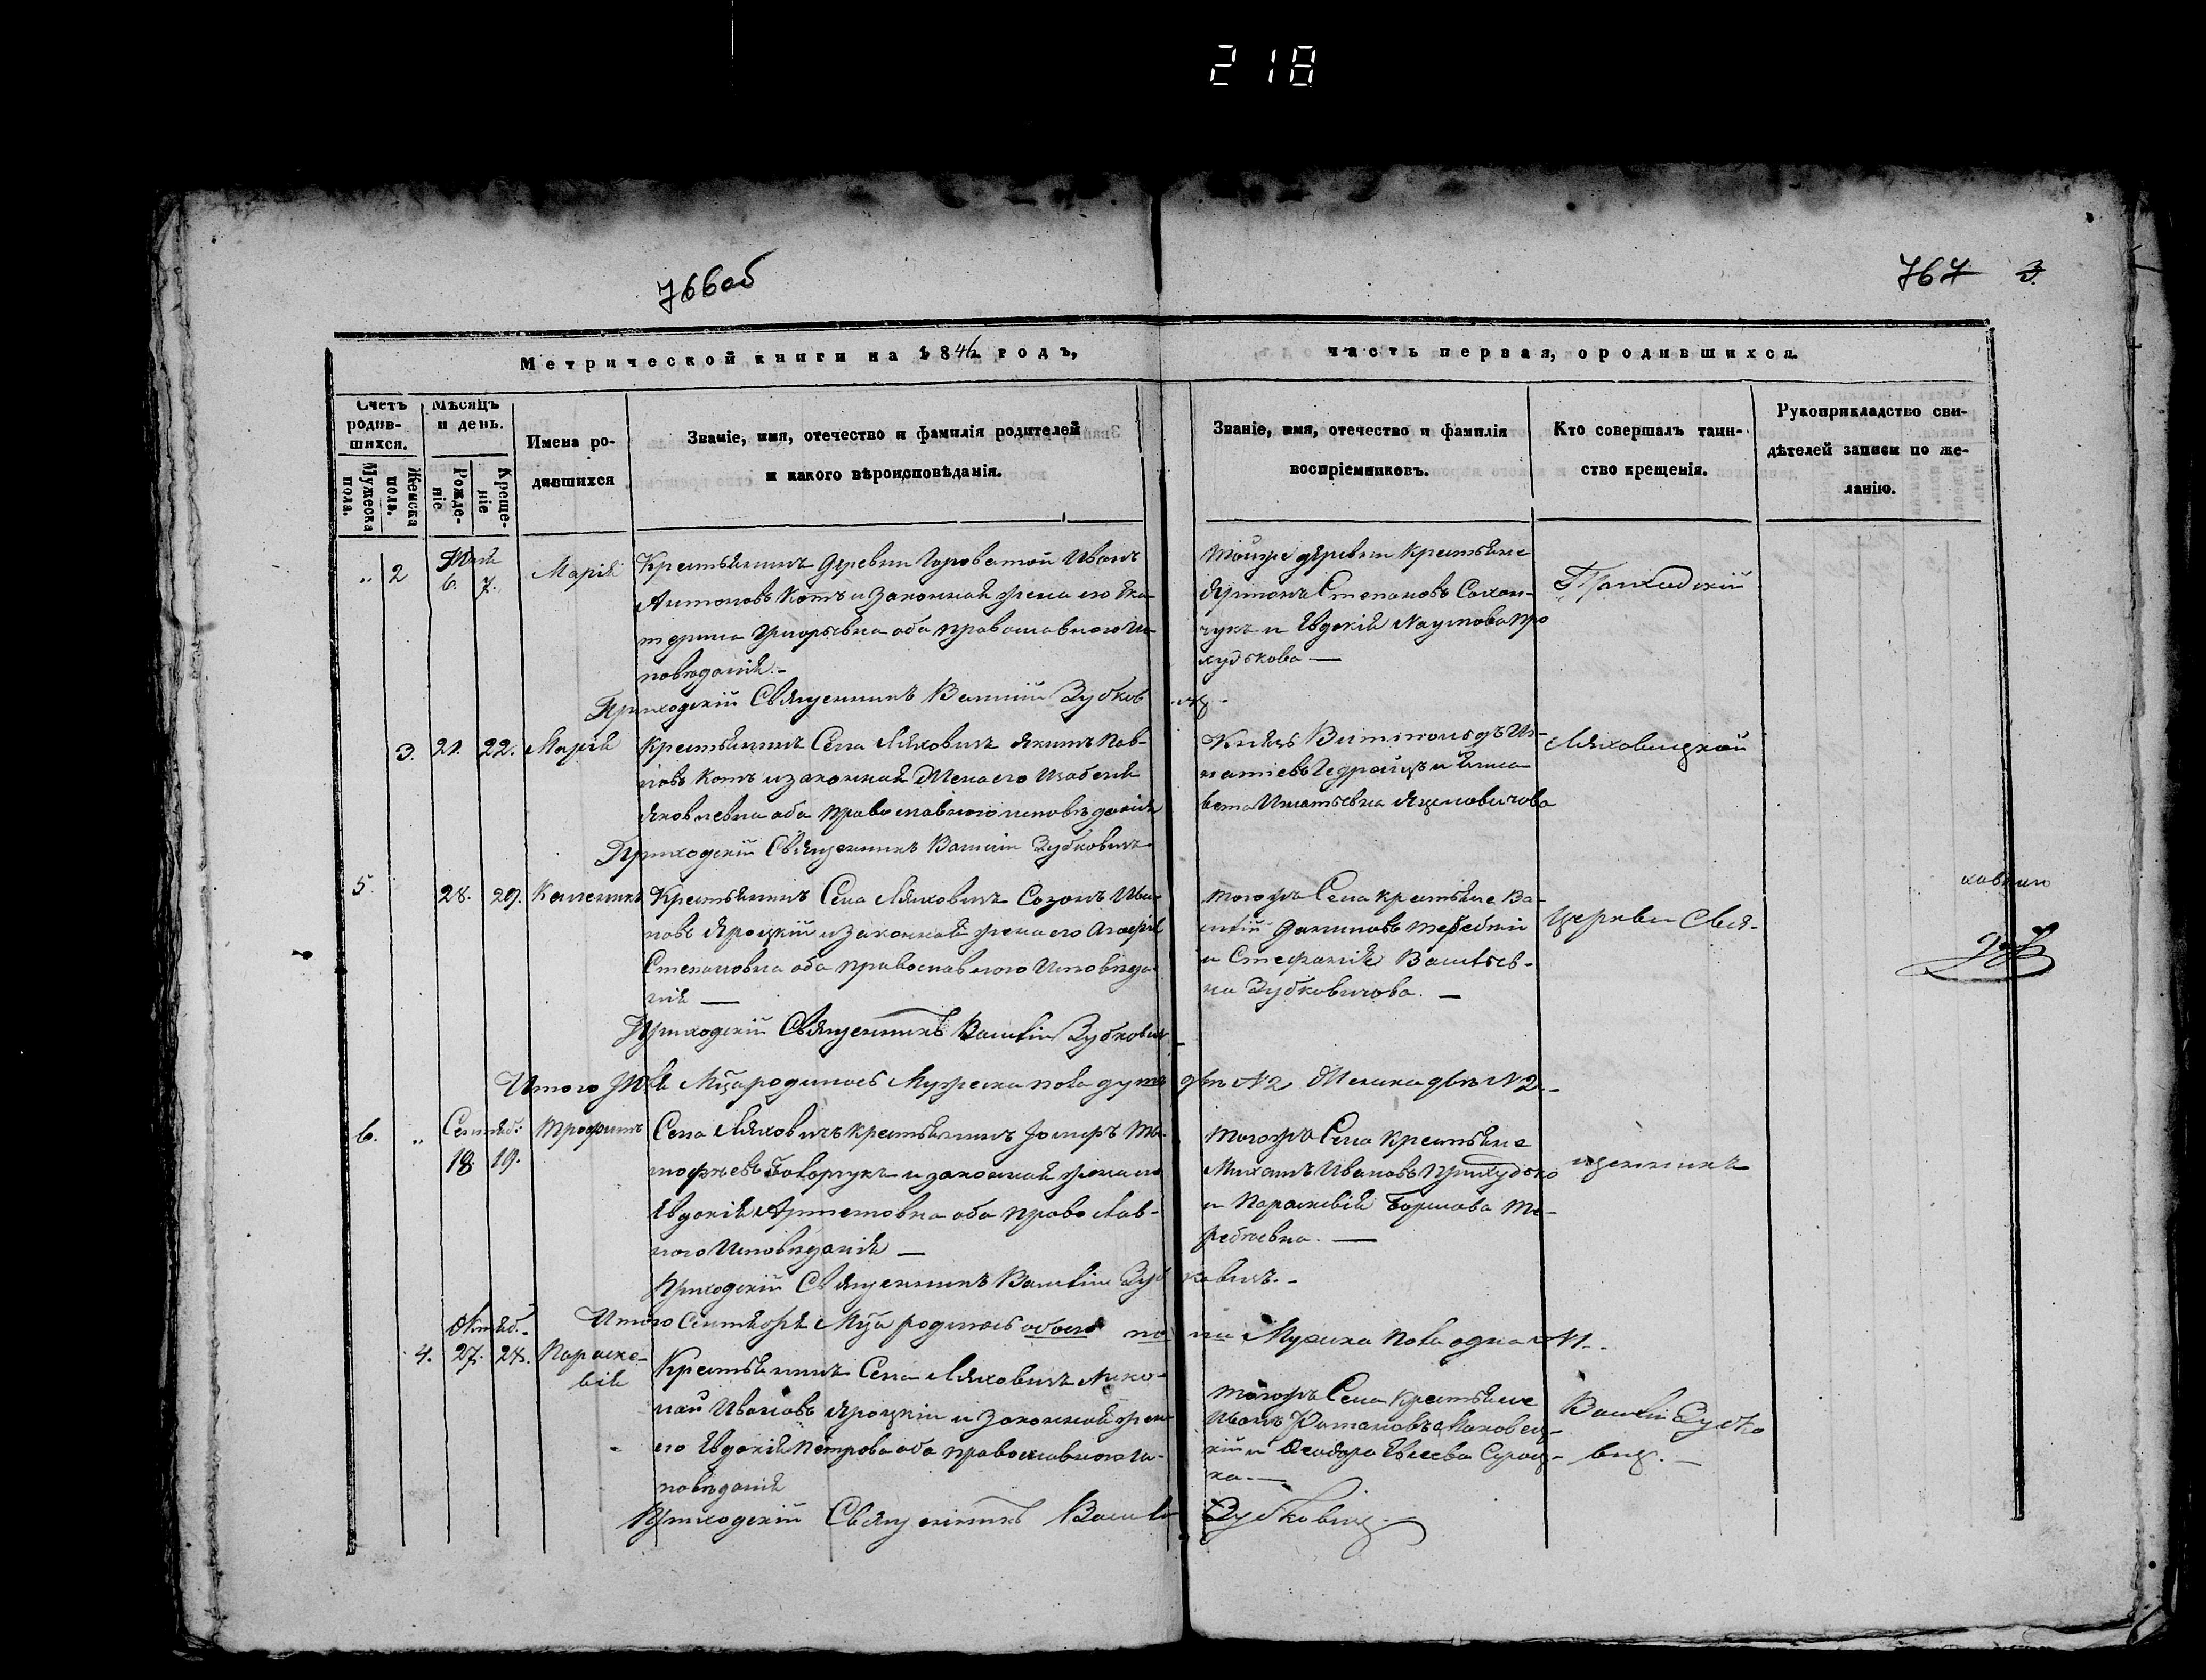 218
766об
767 3.
Метрической книги на 1846. годъ,
часть первая, о родившихся.
Счетъ родив-
шихся.
Мужеска пола.
Женска пола.
Мѣсяцъ и день.
Рожде-
ніе
Креще-
ніе
Имена ро-
дившихся
Званіе, имя, отечество и фамилія родителей
и какого вѣроисповѣданія.
Званіе, имя, отечество и фамилія
воспріемниковъ.
Кто совершалъ таин-
ство крещенія.
Рукоприкладство сви-
дѣтелей записи по же-
ланію.
„ 2 Май 6. 7. Марія
Крестьянинъ деревни Гороватой Иванъ
Антоновъ Котъ и законная жена его Ека-
терина Григорьевна оба православнаго Ис-
повѣданія.-
Приходскій Священникъ Василій Зубковичъ
Тойже деревни крестьяне
Степановъ
и Евдокія Наумова При
худькова —
Приходскій
3. 21. 22. Марія
Крестьянинъ Села Ляховичъ Якимъ Пав-
ловъ Котъ и законная Жена его Изабелла
Яковлевна оба православнаго исповѣданія
Приходскій Священникъ Василій Зубковичъ
Князь Витольдъ Иг-
натіевъ Гедройцъ и Елиса
вета Игнатьевна
Ляховицкой
5. 28. 29.
Крестьянинъ Села Ляховичъ Созонъ Ива-
новъ Яроцкій и законная жена его Агафія
Степановна оба православнаго Исповѣда-
нія —
Приходскій Священникъ Василій Зубковичъ
Тогожъ Села крестьяне Ва-
силій Даниловъ
и Стефанія Васильев-
на Зубковичова. —
Церкви Свя-
Итого Мая Мца родилось Мужеска пола душъ двѣ №2 Женска двѣ №2.-
6. „ Сентяб: 18. 19. Трофимъ
Села Ляховичъ крестьянинъ Ти-
мофѣевъ Говорчукъ и законная жена его
Евдокія оба православ-
наго Исповѣданія —
Приходскій Священникъ Василій Зубковичъ.-
Тогожъ Села крестьяне
Михаилъ Ивановъ Прихудько
и Параскевія
щенникъ
Итого Сентября Мца родилось обоего пола Мужска пола одна №1.
Октяб.
4. 27. 28. Параске-
вія
Крестьянинъ Села Ляховичъ Нико-
лай Ивановъ Яроцкій и законная жена
его Евдокія Петрова оба православнаго Ис-
повѣданія
Тогожъ Села Крестьяне
Иванъ
и Ѳеодора
ка.—
Василій Зубко
вич.—
Приходскій Священникъ Василій Зубкович